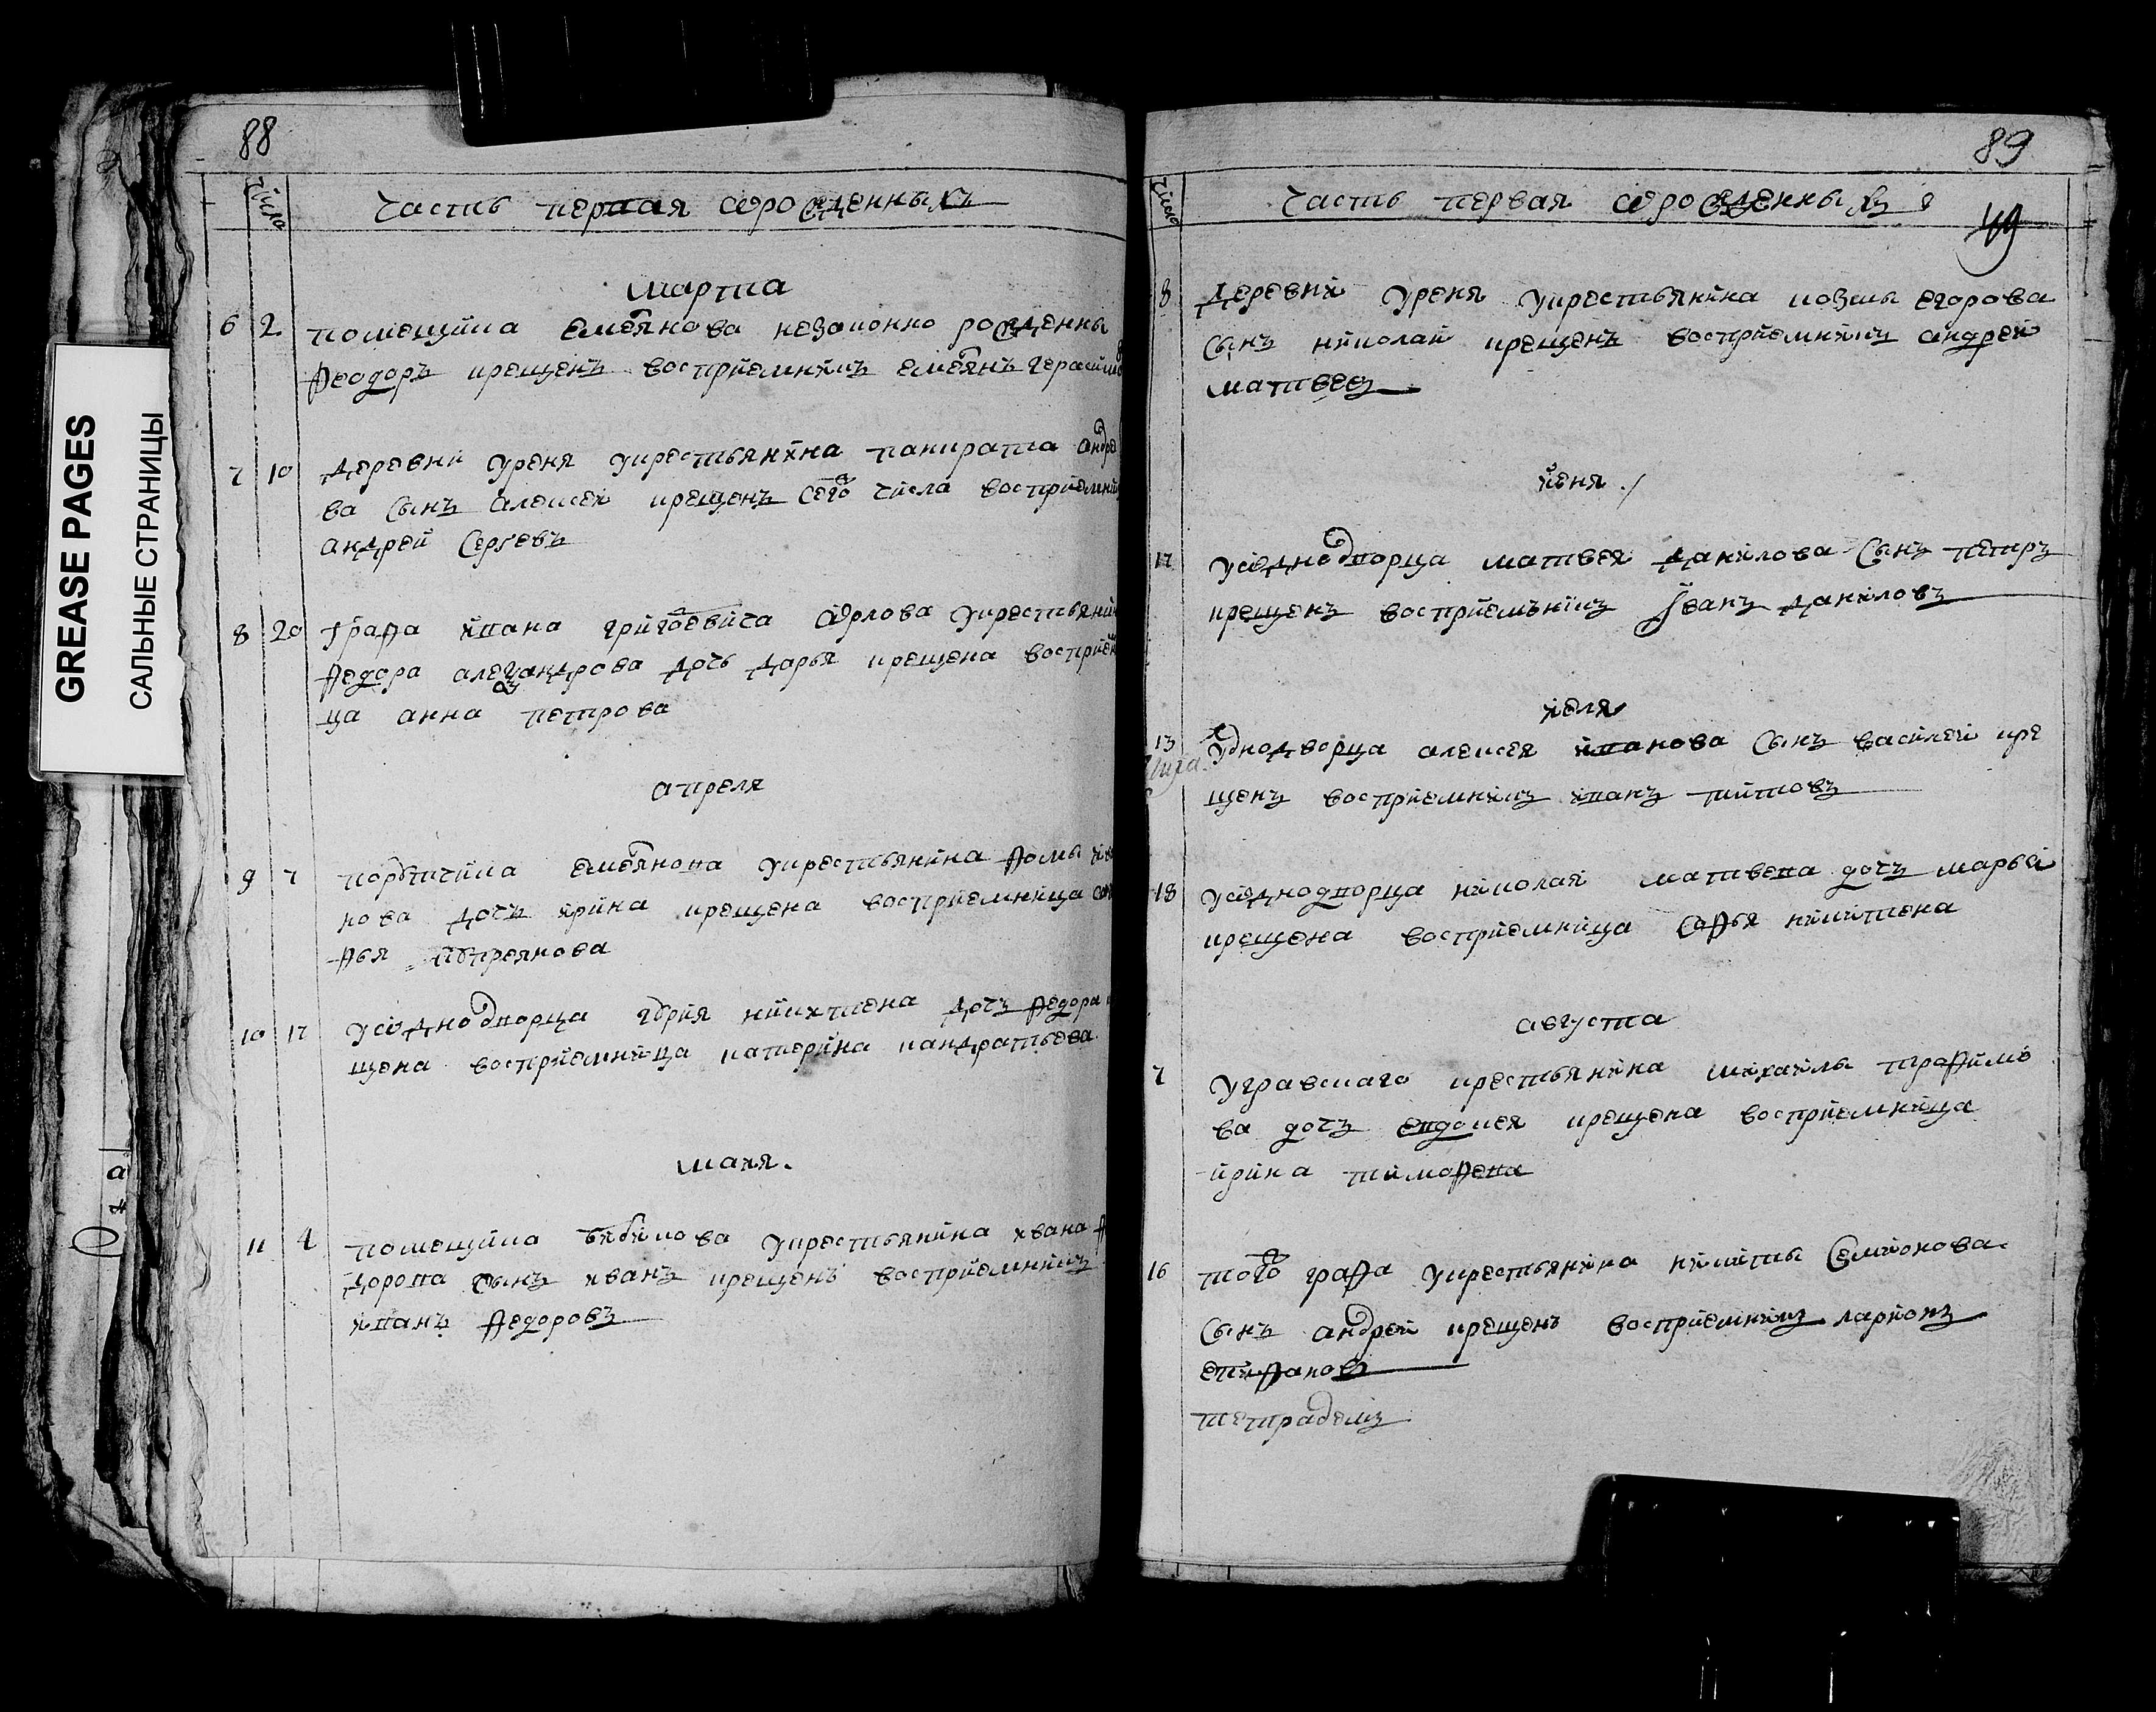 GREASE PAGES
САЛЬНЫЕ СТРАНИЦЫ
88
число
Часть первая ѡрожденныхъ
марта
6 2 помещика емелянова незаконно рожденны
феодоръ крещенъ восприемникъ емелянъ герасимо
7 10 деревни уреня укрестьянина панкрата андре
ва сынъ алексеи крещенъ сего числа восприемни
андрей сергѣевъ
8 20 графа ивана григоевича ѡрлова укрестьянин
федора алеѯандрова дочь дарья крещена восприем
ца анна петрова
апреля
9 7 порутчика емелянова укрестьянина фомы
нова дочъ ирина крещена восприемница
фья
10 17 уѡднодворца никитена дочъ федора
щена восприемница катерина кандратьева
маия.
11 4 помещика бибикова укрестьянина ивана ф
дорова сынъ иванъ крещенъ восприемникъ
иванъ федоровъ
89
число
Часть первая ѡрожденныхъ
49
8 деревни уреня укрестьянина козмы егорова
сынъ николаи крещенъ восприемникъ андреи
матвеевъ
июня
17 уѡднодворца матвея данилова сынъ петръ
крещенъ восприемникъ Iванъ даниловъ
июля
13 уднодворца алексея иванова сынъ василеи кре
щенъ восприемникъ иванъ титовъ
18 уѡднодворца николая матвева дочъ марья
крещена восприемница софья никитена
августа
7 уграѳскаго крестьянина михаилы трофимо
ва дочъ евдокея крещена восприемница
ирина тимофена
16 того графа укрестьянина никиты семионова
сынъ андреи крещенъ восприемникъ ларионъ
епифановъ